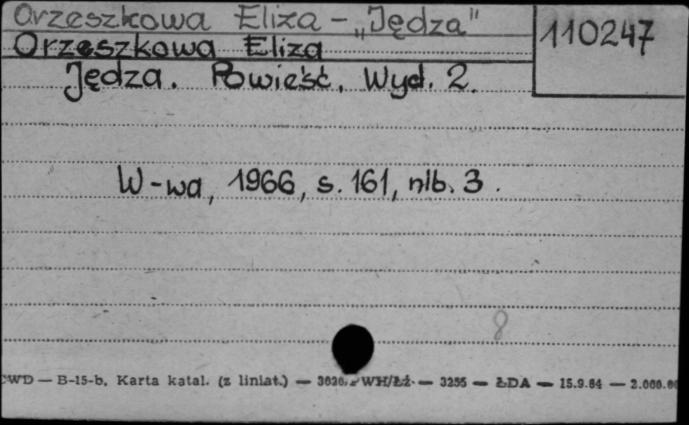 Orzeszkowa Eliza - „Jędza"
110247
Orzeszkowa Eliza
Jędza. Powieść. Wyd. 2.
W-wa, 1966, s. 161, nlb. 3.
8
CWD — B-15-b, Karta katal. (z liniat.) — WH/Łź — 3255 — ŁDA — 15.9.64 — 2.000.00